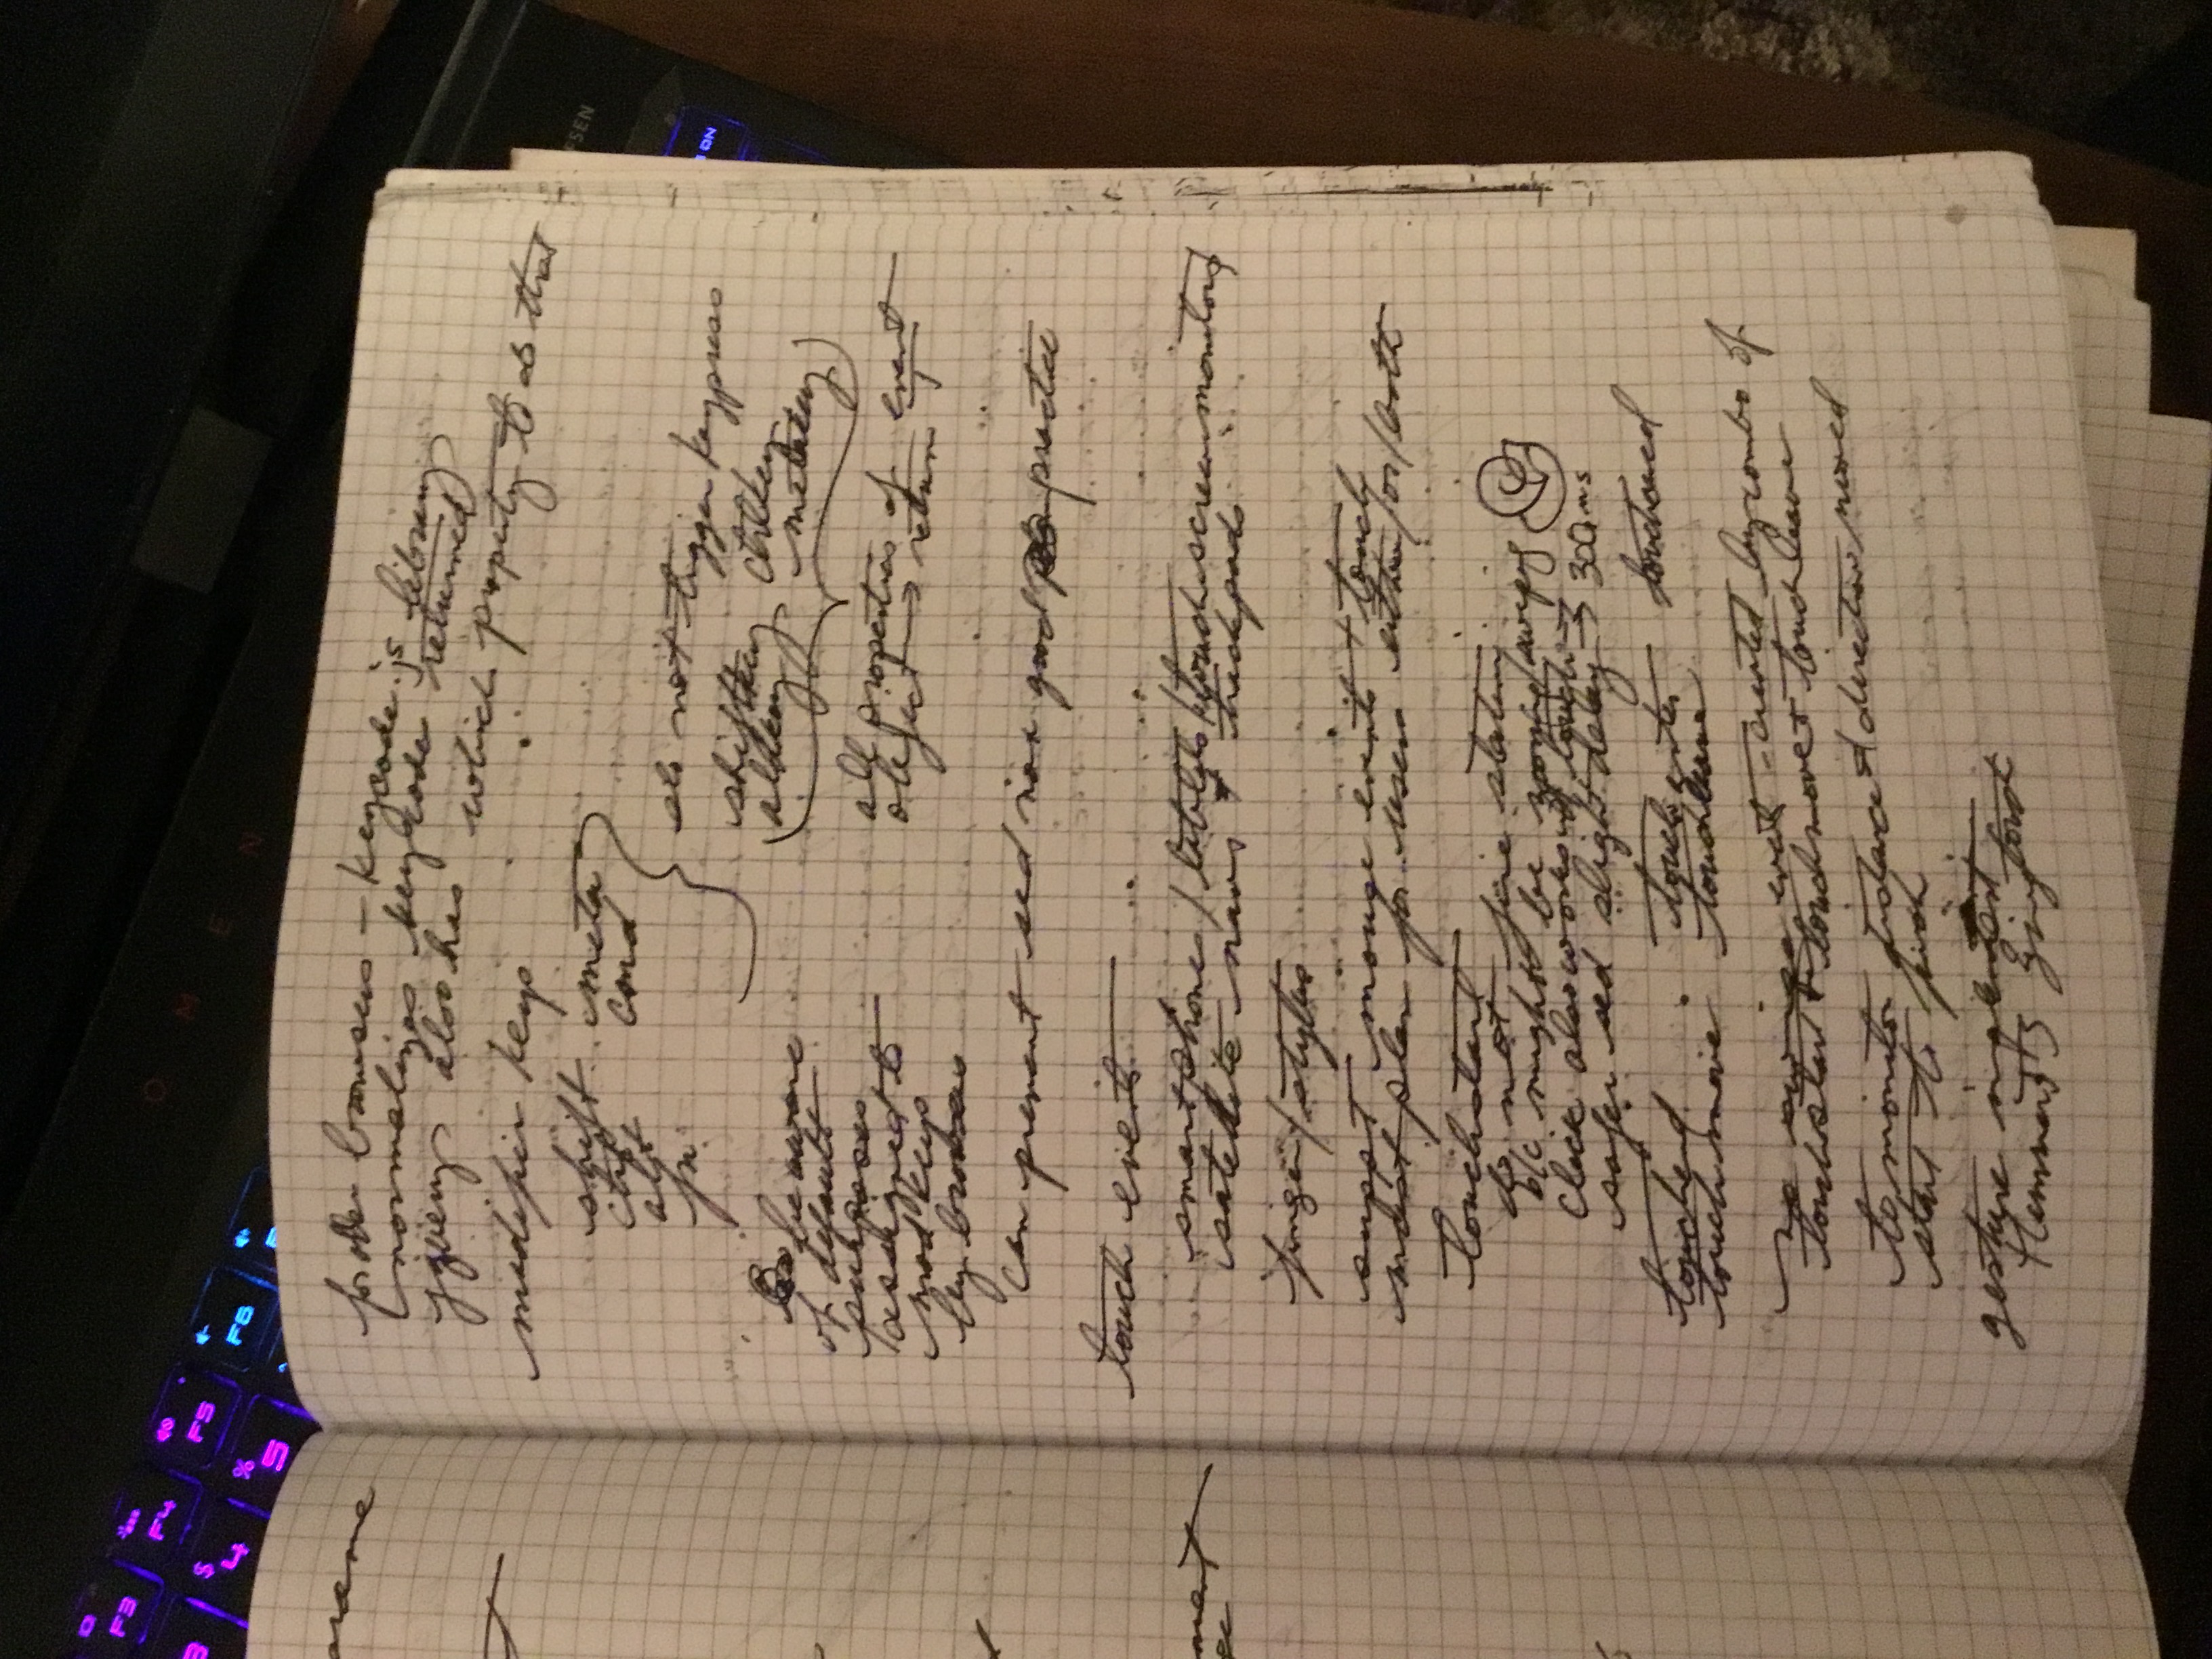 F3
F4
F5
F6
$
4
%
5
OMEN
ON
for older browsers - keycode.js library
(normalizes keycode returned)
jquery also has which property to do that
modifier keys
shift meta
ctrl cmd
alt
fn
do not trigger keypress
shiftkey ctrlkey
altkey metakey
all properties of event
object → return T
be aware
of default
purposes
assigned to
mod keys
by browsers
can prevent not good practice
touch events
smartphones / tablets / touchscreen monitors
satellite navs + trackpads
finger / stylus
suppt mouse events + touch
must plan for users either / or / both
touchstart
do not fire
b/c might be zooming / swiping
click also works w/ touch →
safer slight delay → 300ms
touchend touchenter
touchmove touchleave
no swipe event - created by combo of
touchstart + touchmove + touchleave
to monitor distance + direction moved
start to finish
gesture
Hammer